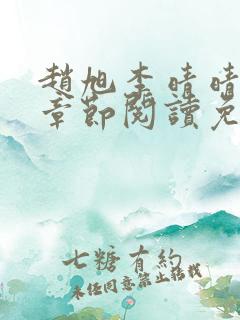 趙旭李晴晴
章節閱讀免
七糖有約
未經同意禁止搭載